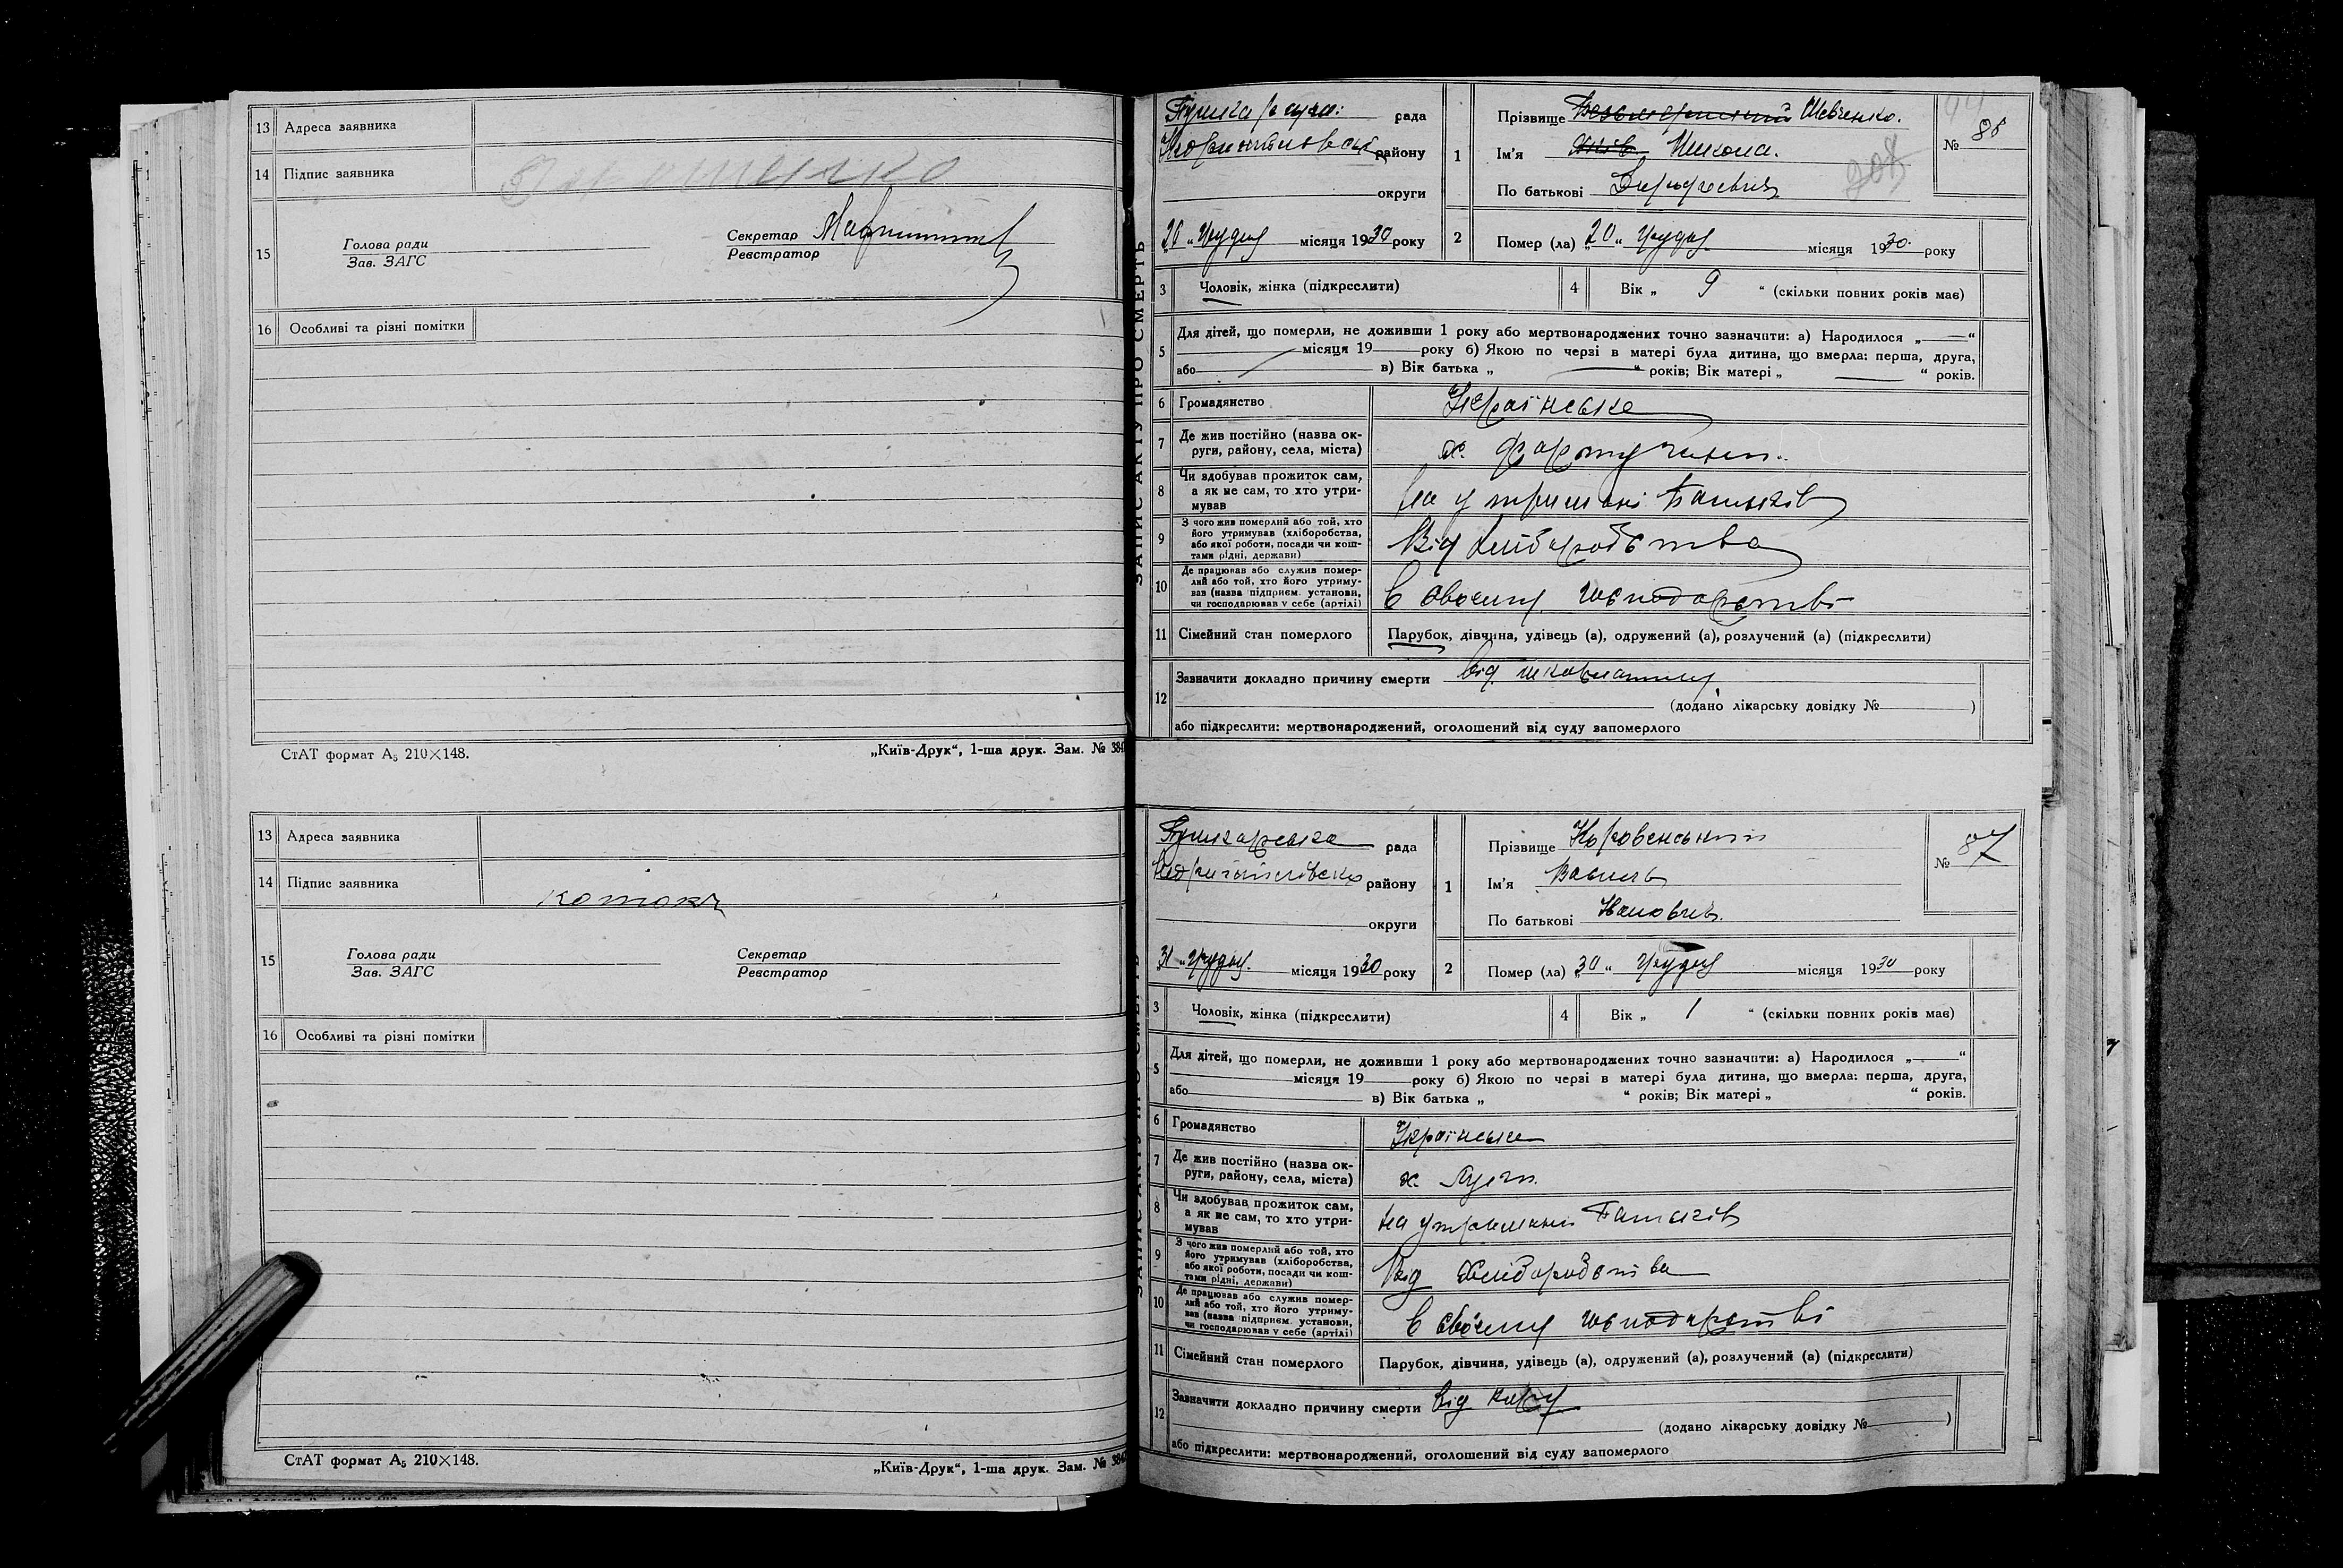 13 Адреса заявника
14 Підпис заявника
15 Голова ради
Зав. ЗАГС
Секретар
Реєстратор
16 Особливі та різні помітки
СтАТ формат А5 210×148.
„Київ-Друк“, 1-ша друк. Зам. № 384
13 Адреса заявника
14 Підпис заявника
15 Голова ради
Зав. ЗАГС
Секретар
Реєстратор
16 Особливі та різні помітки
СтАТ формат А5 210×148.
„Київ-Друк“, 1-ша друк. Зам. № 384
ЗАПИС АКТУ ПРО СМЕРТЬ
рада
району
округи
„ Грудня місяця 1930 року
1 Прізвище Шевченко.
Ім'я Микола.
По батькові
№ 86
2 Помер (ла) „20“ Грудня місяця 1930 року
3 Чоловік, жінка (підкреслити)
4 Вік „ 9 “ (скільки повних років має)
5 Для дітей, що померли, не доживши 1 року або мертвонароджених точно зазначити: а) Народилося „ “
місяця 19 року б) Якою по черзі в матері була дитина, що вмерла: перша, друга,
або в) Вік батька „ “ років; Вік матері „ “ років.
6 Громадянство Українське
7 Де жив постійно (назва ок-
руги, району, села, міста) х.
8 Чи здобував прожиток сам,
а як не сам, то хто утри-
мував на утримані Батьків
9 З чого жив померлий або той, хто
його утримував (хліборобства,
або якої роботи, посади чи кош-
тами рідні, держави) Від хліборобства
10 Де працював або служив помер-
лий або той, хто його утриму-
вав (назва підприєм. установи,
чи господарював у себе (артілі) в своєму господарстві
11 Сімейний стан померлого Парубок, дівчина, удівець (а), одружений (а), розлучений (а) (підкреслити)
12 Зазначити докладно причину смерти від
(додано лікарську довідку № )
або підкреслити: мертвонароджений, оголошений від суду запомерлого
Пушкарська рада
району
округи
31 „ Грудня місяця 1930 року
1 Прізвище
Ім'я Василь
По батькові Іванович
№ 87
2 Помер (ла) „30“ Грудня місяця 1930 року
3 Чоловік, жінка (підкреслити)
4 Вік „ 1 “ (скільки повних років має)
5 Для дітей, що померли, не доживши 1 року або мертвонароджених точно зазначити: а) Народилося „ “
місяця 19 року б) Якою по черзі в матері була дитина, що вмерла: перша, друга,
або в) Вік батька „ “ років; Вік матері „ “ років.
6 Громадянство Українське
7 Де жив постійно (назва ок-
руги, району, села, міста) х.
8 Чи здобував прожиток сам,
а як не сам, то хто утри-
мував на утримані Батьків
9 З чого жив померлий або той, хто
його утримував (хліборобства,
або якої роботи, посади чи кош-
тами рідні, держави) Від хліборобства
10 Де працював або служив помер-
лий або той, хто його утриму-
вав (назва підприєм. установи,
чи господарював у себе (артілі) в своєму господарстві
11 Сімейний стан померлого Парубок, дівчина, удівець (а), одружений (а), розлучений (а) (підкреслити)
12 Зазначити докладно причину смерти від кору
(додано лікарську довідку № )
або підкреслити: мертвонароджений, оголошений від суду запомерлого